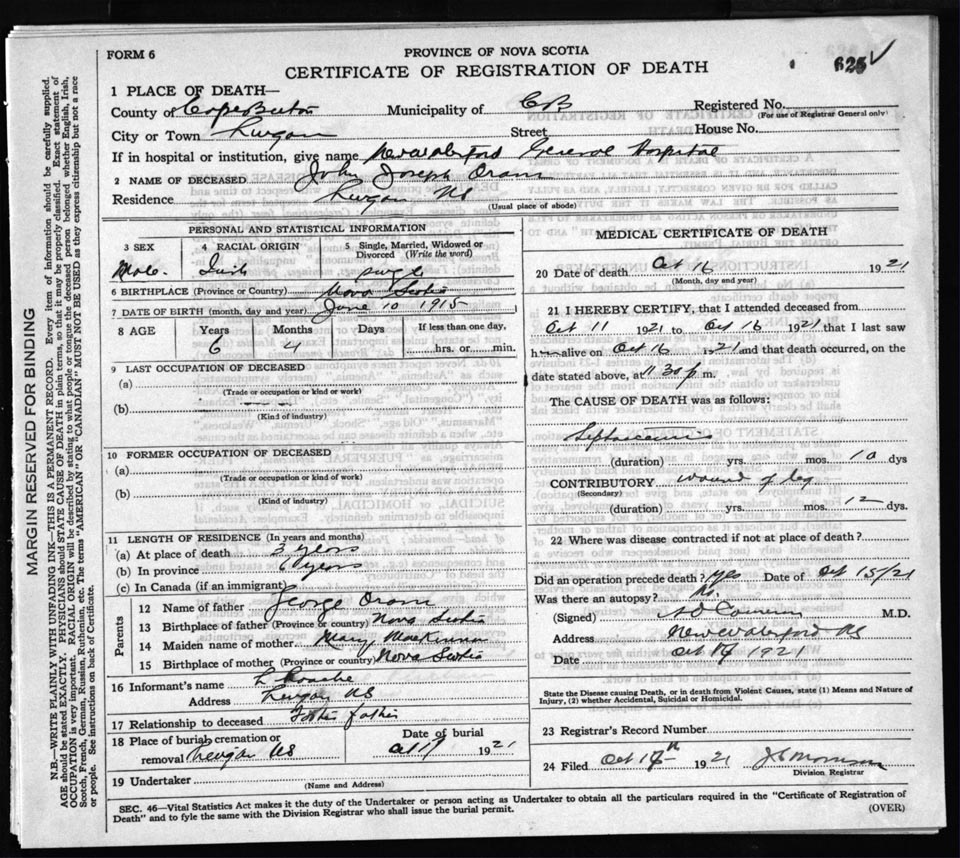 FORM 6
PROVINCE OF NOVA SCOTIA
CERTIFICATE OF REGISTRATION OF DEATH
625 ✓
1 PLACE OF DEATH—
County of Cape Breton Municipality of CB Registered No.
(For use of Registrar General only)
City or Town Lingan Street House No.
If in hospital or institution, give name New Waterford General Hospital
2 NAME OF DECEASED John Joseph Oram
Residence Lingan NS
(Usual place of abode)
PERSONAL AND STATISTICAL INFORMATION
3 SEX 4 RACIAL ORIGIN 5 Single, Married, Widowed or Divorced (Write the word)
Male. Irish single
6 BIRTHPLACE (Province or Country) Nova Scotia
7 DATE OF BIRTH (month, day and year) June 10 1915
8 AGE Years Months Days If less than one day,
6 4 hrs. or min.
9 LAST OCCUPATION OF DECEASED
(a)
(Trade or occupation or kind of work)
(b)
(Kind of industry)
10 FORMER OCCUPATION OF DECEASED
(a)
(Trade or occupation or kind of work)
(b)
(Kind of industry)
11 LENGTH OF RESIDENCE (In years and months)
(a) At place of death 3 years
(b) In province 6 years
(c) In Canada (if an immigrant)
Parents
12 Name of father George Oram
13 Birthplace of father (Province or country) Nova Scotia
14 Maiden name of mother Mary MacKinnon
15 Birthplace of mother (Province or country) Nova Scotia
16 Informant's name L Roache
Address Lingan NS
17 Relationship to deceased Foster father
18 Place of burial cremation or removal Lingan NS Date of burial Oct 17 1921
19 Undertaker
(Name and Address)
MEDICAL CERTIFICATE OF DEATH
20 Date of death Oct 16 1921
(Month, day and year)
21 I HEREBY CERTIFY, that I attended deceased from
Oct 11 1921 to Oct 16 1921 that I last saw
h alive on Oct 16 1921 and that death occurred, on the
date stated above, at 11 30 p m.
The CAUSE OF DEATH was as follows:
Septicaemia
(duration) yrs. mos. 10 dys
CONTRIBUTORY wound of leg
(Secondary)
(duration) yrs. mos. 12 dys.
22 Where was disease contracted if not at place of death?
Did an operation precede death? Yes Date of Oct 15/21
Was there an autopsy? No.
(Signed) M.D.
Address New Waterford NS
Date Oct 1921
State the Disease causing Death, or in death from Violent Causes, state (1) Means and Nature of
Injury, (2) whether Accidental, Suicidal or Homicidal.
23 Registrar's Record Number
24 Filed Oct 1921 Morrison
Division Registrar
SEC. 46—Vital Statistics Act makes it the duty of the Undertaker or person acting as Undertaker to obtain all the particulars required in the "Certificate of Registration of
Death" and to fyle the same with the Division Registrar who shall issue the burial permit.
(OVER)
MARGIN RESERVED FOR BINDING
N.B.—WRITE PLAINLY WITH UNFADING INK—THIS IS A PERMANENT RECORD. Every item of information should be carefully supplied.
AGE should be stated EXACTLY. PHYSICIANS should STATE CAUSE OF DEATH in plain terms, so that it may be properly classified. Exact statement of
OCCUPATION is very important. RACIAL ORIGIN will be described by stating to what people or tongue the deceased person belonged whether English, Irish,
Scotch, French, German, Russian, Ruthenian, etc. The terms "AMERICAN" OR "CANADIAN" MUST NOT BE USED as they express citizenship but not a race
or people. See instructions on back of Certificate.